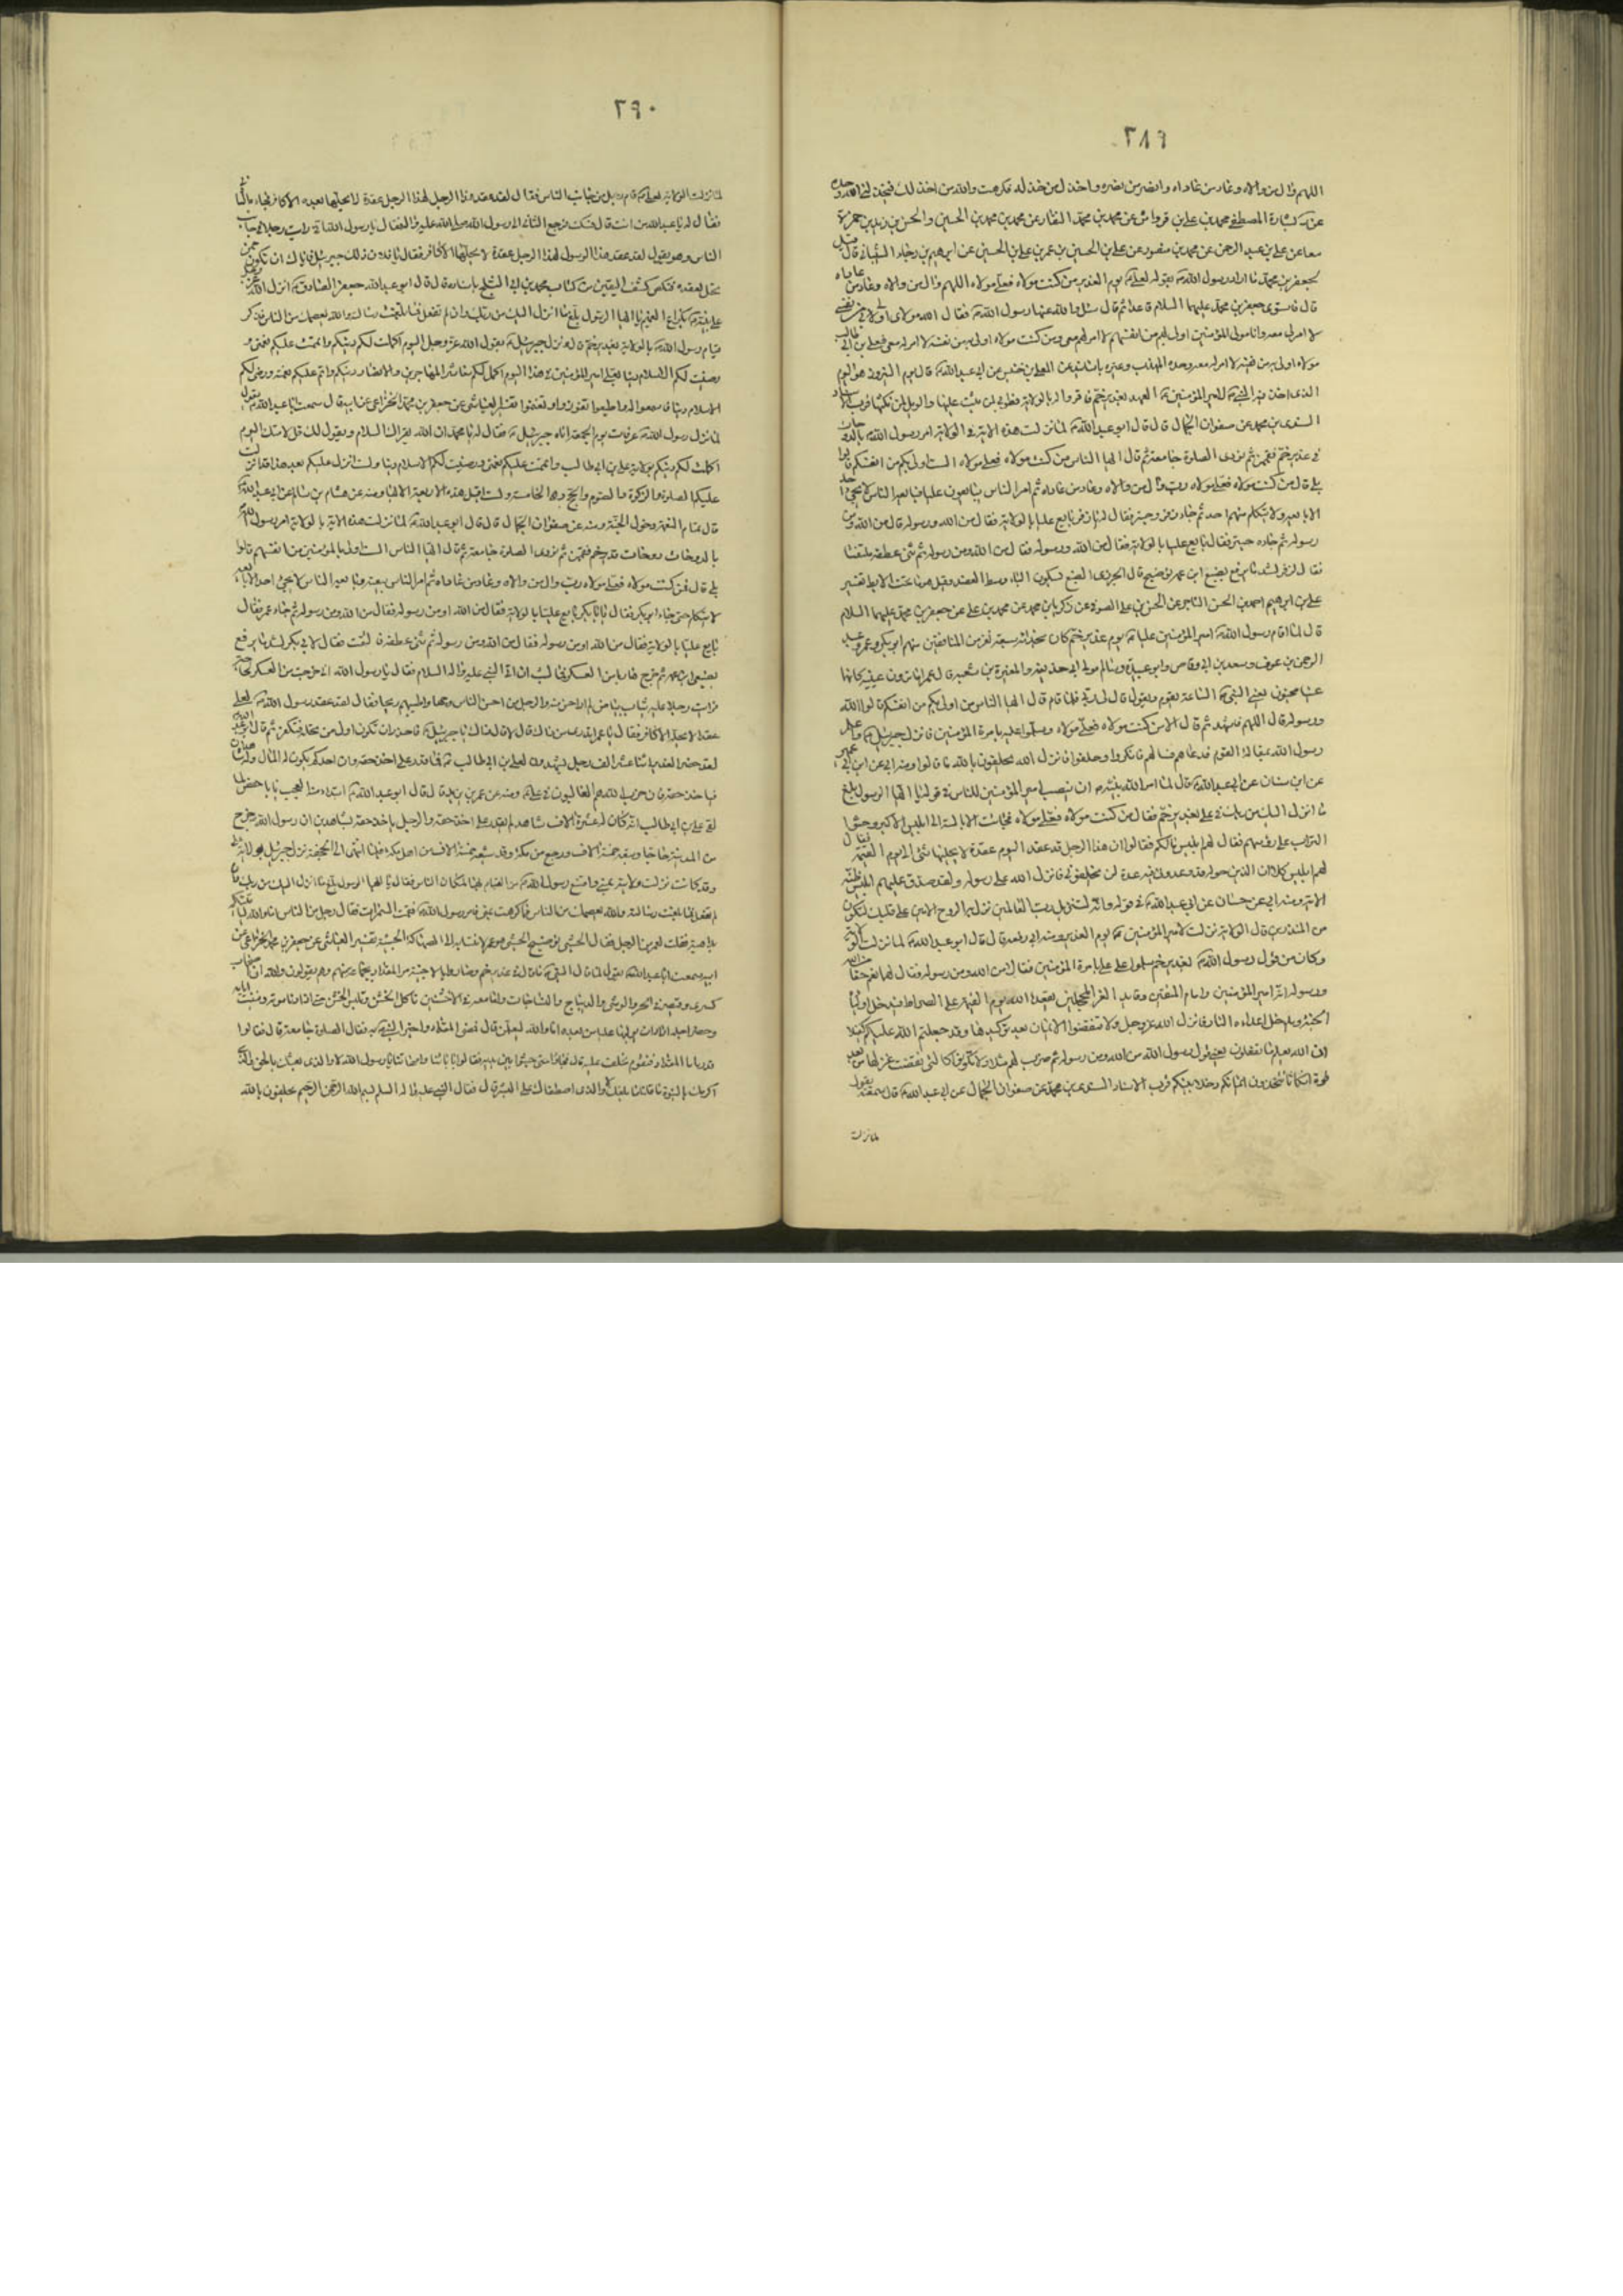 ٢٨٩
اللهم وال من والاه وعاد من عاداه وانصر من نصره واخذل من خذله
عن محمد بن علي بن الحسين بن زيد بن
معا عن علي بن عبد الرحمن عن محمد بن منصور عن علي بن الحسين بن عمر بن علي بن الحسين عن ابرهيم بن رجاء الشيباني قال قيل
لجعفر بن محمد ما اراد رسول الله بقوله لعلي يوم الغدير من كنت مولاه فعلي مولاه اللهم وال من والاه وعاد من عاداه
قال فاستوى جعفر بن محمد عليهما السلام قاعدا ثم قال سئل والله عنها رسول الله فقال الله مولاي اولى بي من نفسي
لا امر لي معه وانا مولى المؤمنين اولى بهم من انفسهم لا امر لهم معي ومن كنت مولاه اولى به من نفسه لا امر له معي فعلي بن ابي طالب
مولاه اولى به من نفسه لا امر له معه عن المعلى بن خنيس عن ابي عبد الله قال يوم النيروز هو اليوم
الذي اخذ فيه النبي لامير المؤمنين العهد بغدير خم فاقروا له بالولاية فطوبى لمن ثبت عليها والويل لمن نكثها
السندي بن محمد عن صفوان الجمال قال قال ابو عبد الله لما نزلت هذه الاية في الولاية امر رسول الله بالدوحات
في غدير خم فقممن ثم نودي الصلوة جامعة ثم قال ايها الناس من كنت مولاه فعلي مولاه الست اولى بكم من انفسكم قالوا
بلى قال من كنت مولاه فعلي مولاه رب وال من والاه وعاد من عاداه ثم امر الناس يبايعون عليا فبايعه الناس لا يجئ احد
الا بايعه ولا يتكلم منهم احد ثم جاء زفر وحبتر فقال له يا زفر بايع عليا بالولاية فقال من الله ورسوله قال من الله ومن
رسوله ثم جاءه حبتر فقال بايع عليا بالولاية فقال من الله ورسوله فقال من الله ومن رسوله ثم ثنى عطفه ملتفتا
فقال لزفر لشد ما يرفع بضبع ابن عمه قال الجزري الضبع بسكون الباء وسط العضد وقيل هو ما تحت الابط تفسير
علي بن ابرهيم احمد بن الحسن التاجر عن الحسن بن علي الصوفي عن زكريا بن محمد عن محمد بن علي عن جعفر بن محمد عليهما السلام
قال لما اقام رسول الله امير المؤمنين عليا يوم غدير خم كان بحذائه سبعة نفر من المنافقين منهم ابو بكر وعمر وعبد
الرحمن بن عوف وسعد بن ابي وقاص وابو عبيدة وسالم مولى ابي حذيفة والمغيرة بن شعبة قال عمر اما ترون عينيه كانها
عينا مجنون يعني النبي الساعة يقوم ويقول قال لي ربي فلما قام قال ايها الناس من اولى بكم من انفسكم قالوا الله
ورسوله قال اللهم فاشهد ثم قال الا من كنت مولاه فعلي مولاه وسلموا عليه بامرة المؤمنين فانزل جبرئيل واعلم
رسول الله بمقالة القوم فدعاهم فسالهم فانكروا وحلفوا فانزل الله يحلفون بالله ما قالوا ومنه ابي عن ابن ابي عمير
عن ابن سنان عن ابي عبد الله قال لما امر الله نبيه ان ينصب امير المؤمنين للناس في قوله يا ايها الرسول بلغ
ما انزل اليك من ربك في علي بغدير خم فقال من كنت مولاه فعلي مولاه فجاءت الابالسة الى ابليس الاكبر وحثوا
التراب على رؤسهم فقال لهم ابليس ما لكم فقالوا ان هذا الرجل قد عقد اليوم عقدة لا يحلها شئ الى يوم القيمة فقال
لهم ابليس كلا ان الذين حوله قد وعدوني فيه عدة لن يخلفوني فانزل الله على رسوله ولقد صدق عليهم ابليس ظنه
الاية ومنه ابي عن حسان عن ابي عبد الله في قوله وانه لتنزيل رب العالمين نزل به الروح الامين على قلبك لتكون
من المنذرين قال الولاية نزلت لامير المؤمنين يوم الغدير ومنه قال قال ابو عبد الله لما نزلت الولاية
وكان من قول رسول الله بغدير خم سلموا على علي بامرة المؤمنين فقال من الله ومن رسوله فقال لهما نعم حقا من الله
ورسوله انه امير المؤمنين وامام المتقين وقائد الغر المحجلين يقعده الله يوم القيمة على الصراط فيدخل اولياءه
الجنة ويدخل اعداءه النار فانزل الله عز وجل ولا تنقضوا الايمان بعد توكيدها وقد جعلتم الله عليكم كفيلا
ان الله يعلم ما تفعلون يعني قول رسول الله من الله ومن رسوله ثم ضرب لهم مثلا ولا تكونوا كالتي نقضت غزلها من بعد
قوة انكاثا تتخذون ايمانكم دخلا بينكم قرب الاسناد السندي بن محمد عن صفوان الجمال عن ابي عبد الله قال سمعته يقول
لما نزلت
٢٩٠
لما نزلت الولاية لعلي قام رجل من جانب الناس فقال لقد عقد هذا الرجل لهذا الرجل عقدة لا يحلها بعده الا كافر فجاءه الثاني
فقال له يا عبد الله من انت قال فسكت فرجع الثاني الى رسول الله صلى الله عليه واله فقال يا رسول الله اني رايت رجلا في جانب
الناس وهو يقول لقد عقد هذا الرسول لهذا الرجل عقدة لا يحلها الا كافر فقال يا فلان ذلك جبرئيل فاياك ان تكون ممن
يحل العقدة فنكص كشف اليقين من كتاب محمد بن ابي الثلج باسناده قال قال ابو عبد الله جعفر الصادق انزل الله عز وجل
على نبيه بكراع الغميم يا ايها الرسول بلغ ما انزل اليك من ربك وان لم تفعل فما بلغت رسالته والله يعصمك من الناس فذكر
قيام رسول الله بالولاية بغدير خم قال ونزل جبرئيل بقول الله عز وجل اليوم اكملت لكم دينكم واتممت عليكم نعمتي و
رضيت لكم الاسلام دينا بعلي امير المؤمنين في هذا اليوم اكمل لكم معاشر المهاجرين والانصار دينكم واتم عليكم نعمته ورضي لكم
الاسلام دينا فاسمعوا له واطيعوا تفوزوا وتغنموا تفسير العياشي عن جعفر بن محمد الخزاعي عن ابيه قال سمعت ابا عبد الله يقول
لما نزل رسول الله عرفات يوم الجمعة اتاه جبرئيل فقال له يا محمد ان الله يقرئك السلام ويقول لك قل لامتك اليوم
اكملت لكم دينكم بولاية علي بن ابي طالب واتممت عليكم نعمتي ورضيت لكم الاسلام دينا ولست انزل عليكم بعد هذا قد انزلت
عليكم الصلوة والزكوة والصوم والحج وهي الخامسة ولست اقبل هذه الاربعة الا بها ومنه عن هشام بن سالم عن ابي عبد الله
قال تمام النعمة دخول الجنة ومنه عن صفوان الجمال قال قال ابو عبد الله لما نزلت هذه الاية بالولاية امر رسول الله
بالدوحات دوحات غدير خم فقممن ثم نودي الصلوة جامعة ثم قال ايها الناس الست اولى بالمؤمنين من انفسهم قالوا
بلى قال فمن كنت مولاه فعلي مولاه رب وال من والاه وعاد من عاداه ثم امر الناس ببيعته وبايعه الناس لا يجئ احد الا بايعه
لا يتكلم حتى جاء ابو بكر فقال يا ابا بكر بايع عليا بالولاية فقال من الله او من رسوله فقال من الله ومن رسوله ثم جاء عمر فقال
بايع عليا بالولاية فقال من الله او من رسوله فقال من الله ومن رسوله ثم ثنى عطفيه فالتفت فقال لابي بكر لشد ما يرفع
بضبعي ابن عمه ثم خرج هاربا من العسكر فما لبث ان اتى النبي عليه واله السلام فقال يا رسول الله اني خرجت من العسكر
فرايت رجلا عليه ثياب بياض لم ار احسن منه والرجل من احسن الناس وجها واطيبهم ريحا فقال لقد عقد رسول الله لعلي
عقدا لا يحله الا كافر فقال يا عمر اتدري من ذاك قال لا قال ذاك جبرئيل فاحذر ان تكون اول من يحله فتكفر ثم قال ابو عبد الله
لقد حضر الغدير اثنا عشر الف رجل يشهدون لعلي بن ابي طالب فما قدر على اخذ حقه وان احدكم يكون له المال وله شاهدان
فياخذ حقه فان حزب الله هم الغالبون في علي ومنه عن عمر بن يزيد قال قال ابو عبد الله ابتداء منه العجب يا ابا حفص لما
لقي علي بن ابي طالب انه كان له عشرة الاف شاهد لم يقدر على اخذ حقه والرجل ياخذ حقه بشاهدين ان رسول الله خرج
من المدينة حاجا وتبعه خمسة الاف ورجع من مكة وقد شيعه خمسة الاف من اهل مكة فلما انتهى الى الجحفة نزل جبرئيل بولاية علي
وقد كانت نزلت ولايته بمنى وامتنع رسول الله من القيام بها لمكان الناس فقال يا ايها الرسول بلغ ما انزل اليك من ربك وان
لم تفعل فما بلغت رسالته والله يعصمك من الناس مما كرهت بمنى فامر رسول الله فقمت السمرات فقال رجل من الناس اما والله لياتينكم
بداهية فقلت لعمر من الرجل فقال الحبشي تفسير العياشي عن جعفر بن محمد الخزاعي عن
ابيه سمعت ابا عبد الله يقول لما قال النبي ما قال في غدير خم وصاروا بالاخبية مر المقداد بجماعة منهم وهم يقولون والله ان كنا اصحاب
كسرى وقيصر في الخز والوشي والديباج والنساجات وانا معه في الاخشنين ناكل الخشن ونلبس الخشن حتى اذا
فقال الصلوة جامعة قال فقالوا
قد رمانا المقداد فنقوم نحلف عليه قال فجاؤا حتى جثوا بين يديه فقالوا بابائنا وامهاتنا يا رسول الله لا والذي بعثك بالحق والذي
اكرمك بالنبوة ما قلنا ما بلغك والذي اصطفاك على البشر قال فقال النبي عليه واله السلام بسم الله الرحمن الرحيم يحلفون بالله